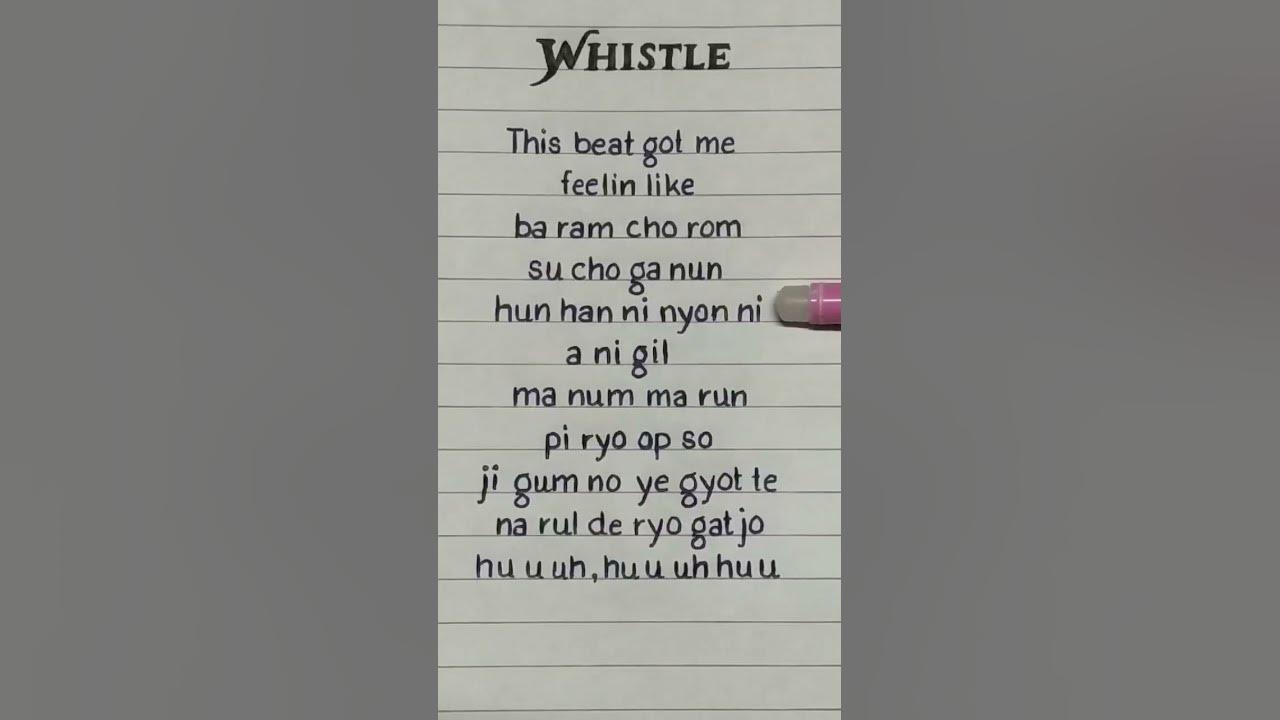 WHISTLE
This beat got me
feelin like
ba ram cho rom
su cho ga nun
hun han ni nyon ni
a ni gil
ma num ma run
pi ryo op so
ji gum no ye gyot te
na rul de ryo gat jo
hu u uh, hu u uh hu u